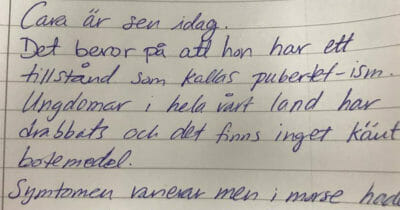 Cara är sen idag.
Det beror på att hon har ett
tillstånd som kallas pubertet-ism.
Ungdomar i hela vårt land har
drabbats och det finns inget känt
botemedel.
Symtomen varierar men i morse had